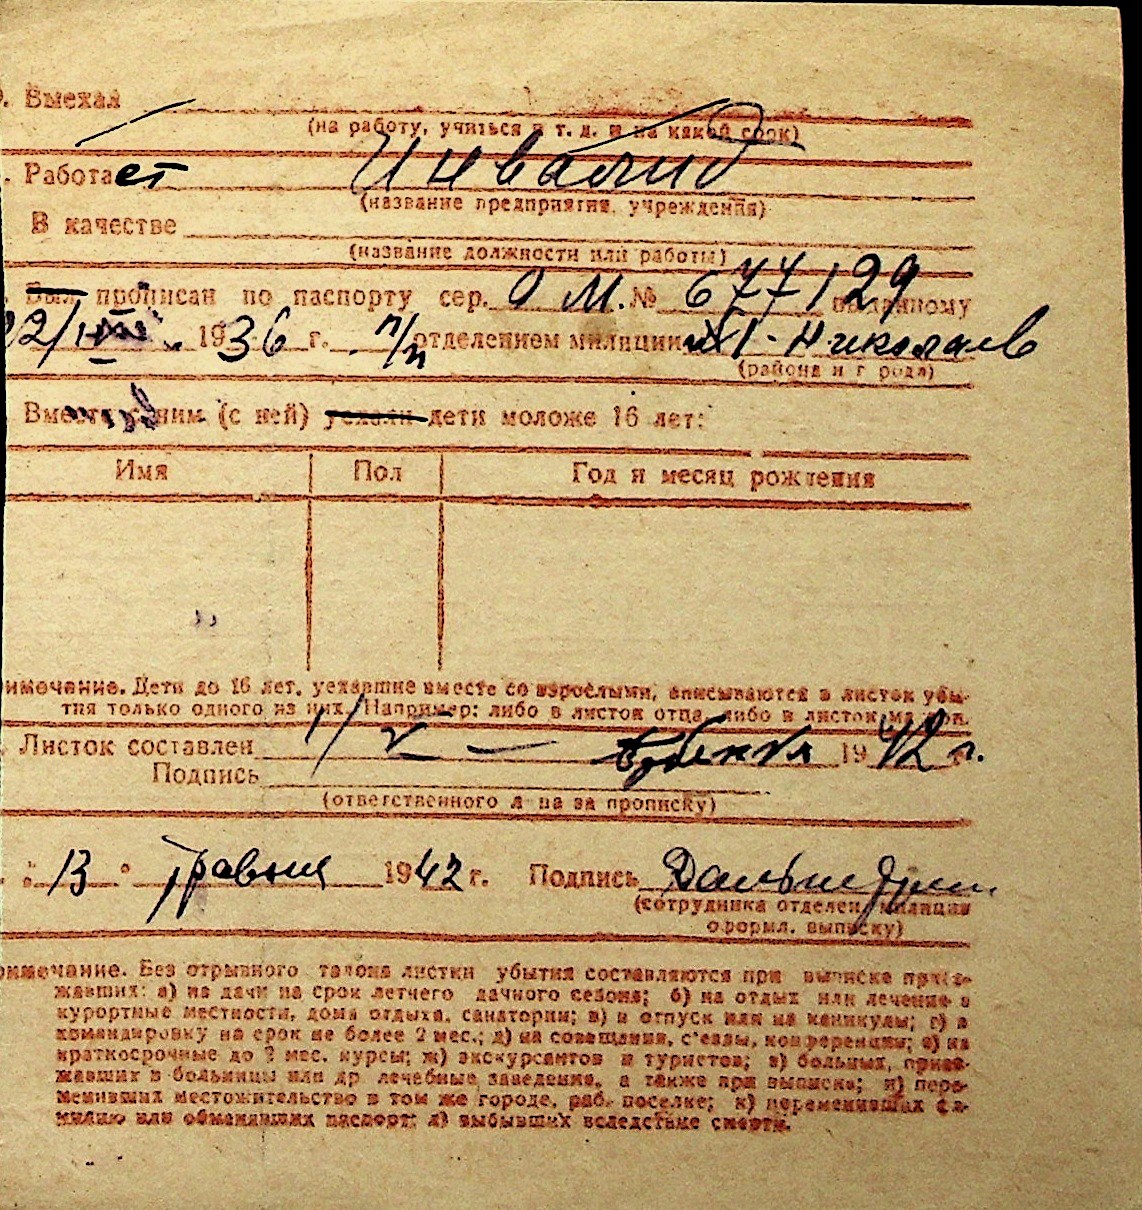 . Выехал
(на работу, учиться и т. д. и на какой срок)
. Работает Инвалид
(название предприятия, учреждения)
В качестве
(название должности или работы)
Был прописан по паспорту сер. М. № 677129 выданному
1936 г. п/п отделением милиции Николаев
(района и города)
Вместе с ним (с ней) уехали дети моложе 16 лет:
Имя Пол Год и месяц рождения
имечание. Дети до 16 лет, уехавшие вместе со взрослыми, вписываются в листок убы-
тия только одного из них. Например: либо в листок отца, либо в листок матери.
Листок составлен 1942 г.
Подпись
(ответственного лица за прописку)
" 13 " травня 1942 г. Подпись
(сотрудника отделен. милиции
оформл. выписку)
имечание. Без отрывного талона листки убытия составляются при выписке приез-
жавших: а) на дачи на срок летнего дачного сезона; б) на отдых или лечение в
курортные местности, дома отдыха, санатории; в) в отпуск или на каникулы; г) в
командировку на срок не более 2 мес.; д) на совещания, с'езды, конференции; е) на
краткосрочные до 2 мес. курсы; ж) экскурсантов и туристов; з) больных, приез-
жавших в больницы или др лечебные заведения, а также при выписке; и) пере-
менивших местожительство в том же городе, раб. поселке; к) переменивших фа-
милию или обменявших паспорт; л) выбывших вследствие смерти.